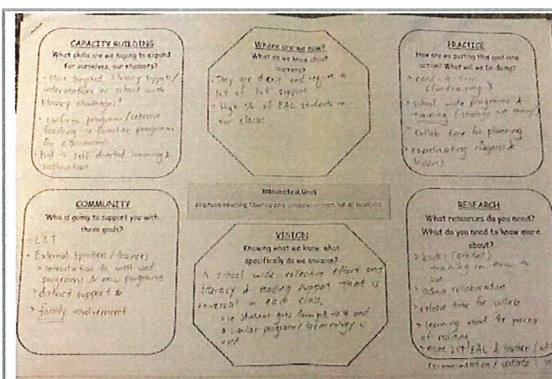 CAPACITY BUILDING
What skills are we hoping to expand
for ourselves, our students?
- More targeted literacy support/
intervention at school with
literacy challenges
- Uniform program/cohesive
teaching → familiar programs
for
→ self directed learning &
instruction
Where are we now?
What do we know about
learners?
- They are diverse and require a
lot of support
- High % of EAL students in
our classes
PRACTICE
How are we putting this goal into
action? What will we be doing?
> read-a-thon
(fundraising)
> school wide programs &
training
> collab time for planning
> coordinating
lessons
COMMUNITY
Who is going to support you with
these goals?
- LST
- External speakers/trainers
> introduction to well used
programs & new programs
> district support
> family involvement
Instructional Goal
VISION
Knowing what we know, what
specifically do we envision?
A school wide collective effort on
literacy & reading support that is
universal in each class.
> ie student goes from and
> similar program/terminology is
used
RESEARCH
What resources do you need?
What do you need to know more
about?
> books (graded)
training on how to
use
> admin collaboration
> release time for collab
> learning about the
of reading
> more LST/EAL & teacher /
communication / updates